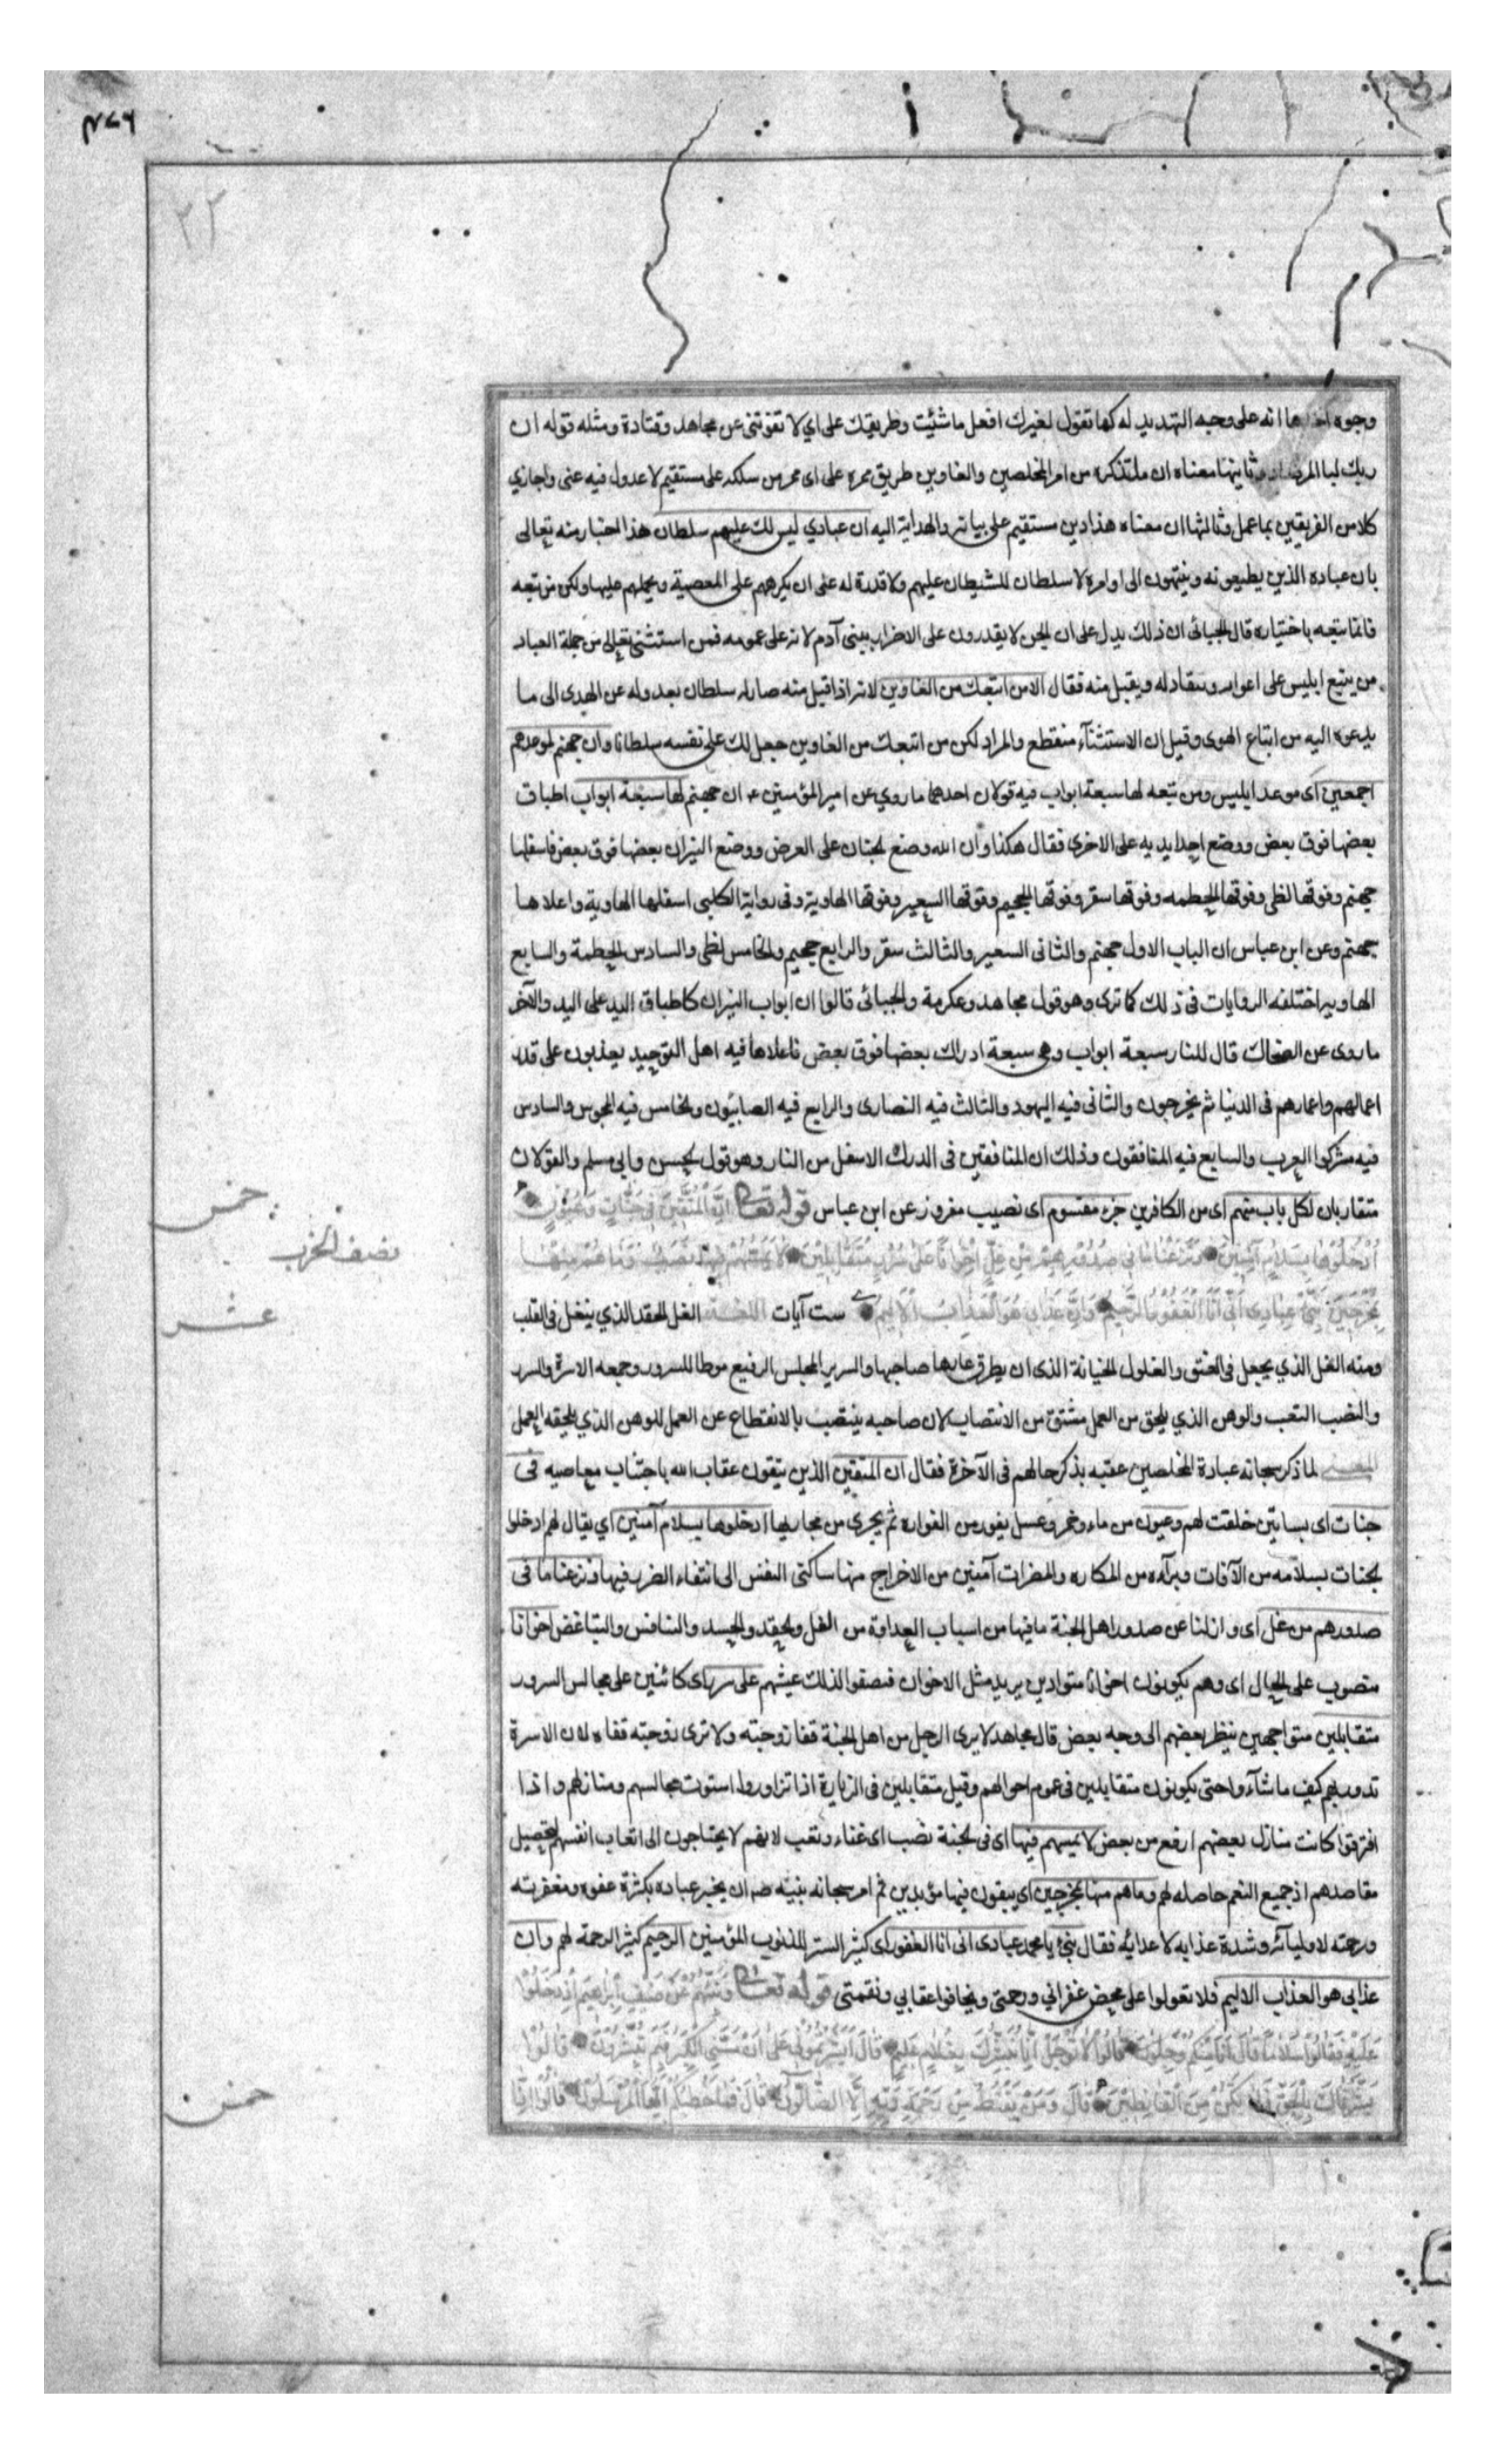 وجوه احدها انه على وجه التهديد له كما تقول لغيرك افعل ما شئت وطريقك على اي لا تفوتنى عن مجاهد وقتادة ومثله قوله ان
ربك لبا المرصاد وثانيها معناه ان ما تذكره من امر المخلصين والغاوين طريق ممره على اى ممر من سلكه على مستقيم لا عدول فيه عنى واجازي
كلا من الفريقين بما عمل وثالثها ان معناه هذا دين مستقيم على بيانه والهداية اليه ان عبادي ليس لك عليهم سلطان هذا اخبار منه تعالى
بان عباده الذين يطيعونه وينتهون الى اوامره لا سلطان للشيطان عليهم ولا قدرة له على ان يكرههم على المعصية ويحملهم عليها ولكن من تبعه
فانما يتبعه باختياره قال الجبائى ان ذلك يدل على ان الجن لا يقدرون على الاضرار ببنى آدم لانه على عمومه فمن استثنى تعالى من جملة العباد
من يتبع ابليس على اغوائه وينقاد له ويقبل منه فقال الا من اتبعك من الغاوين لانه اذا قبل منه صار له سلطان بعدوله عن الهدى الى ما
يدعوه اليه من اتباع الهوى وقيل ان الاستثنآء منقطع والمراد لكن من اتبعك من الغاوين جعل لك على نفسه سلطانا وان جهنم لموعدهم
اجمعين اى موعد ابليس ومن تبعه لها سبعة ابواب فيه قولان احدهما ما روي عن امير المؤمنين ع ان جهنم لها سبعة ابواب اطباق
بعضها فوق بعض ووضع احدا يديه على الاخرى فقال هكذا وان الله وضع الجنان على العرض ووضع النيران بعضها فوق بعض فاسفلها
جهنم وفوقها لظى وفوقها الحطمه وفوقها سقر وفوقها الجحيم وفوقها السعير وفوقها الهاوية وفى رواية الكلبى اسفلها الهاوية واعلاها
جهنم وعن ابن عباس ان الباب الاول جهنم والثانى السعير والثالث سقر والرابع جحيم والخامس لظى والسادس الحطمة والسابع
الهاويه اختلفه الروايات فى ذلك كما ترى وهو قول مجاهد وعكرمة والجبائى قالوا ان ابواب النيران كاطباق اليد على اليد والآخر
ما روى عن الضحاك قال للنار سبعة ابواب وهى سبعة ادراك بعضها فوق بعض فاعلاها فيه اهل التوحيد يعذبون على قدر
اعمالهم واعمارهم فى الدنيا ثم يخرجون والثانى فيه اليهود والثالث فيه النصارى والرابع فيه الصابئون والخامس فيه المجوس والسادس
فيه مشركوا العرب والسابع فيه المنافقون وذلك ان المنافقين فى الدرك الاسفل من النار وهو قول الحسن وابي مسلم والقولان
متقاربان لكل باب منهم اى من الكافرين جزء مقسوم اى نصيب مفروز عن ابن عباس قوله تعالى اِنَّ الْمُتَّقِينَ فِى جَنَّاتٍ وَعُيُونٍ
اُدْخُلُوهَا بِسَلَامٍ آمِنِينَ وَنَزَعْنَا مَا فِى صُدُورِهِمْ مِنْ غِلٍّ اِخْوَانًا عَلَى سُرُرٍ مُتَقَابِلِينَ لَا يَمَسُّهُمْ فِيهَا نَصَبٌ وَمَا هُمْ مِنْهَا
بِمُخْرَجِينَ نَبِّئْ عِبَادِى اَنِّى اَنَا الْغَفُورُ الرَّحِيمُ وَاَنَّ عَذَابِى هُوَ الْعَذَابُ الْاَلِيمُ ست آيات اللغة الغل الحقد الذي ينغل فى القلب
ومنه الغل الذي يجعل فى العنق والغلول الخيانة الذى ان يطرق عارها صاحبها والسرير المجلس الرفيع موطا للسرور وجمعه الاسرة والسرر
والنصب التعب والوهن الذي يلحق من العمل مشتق من الانتصاب لان صاحبه ينتصب بالانقطاع عن العمل للوهن الذي يلحقه العمل
المعنى لما ذكر سبحانه عبادة المخلصين عقبه بذكر حالهم فى الآخرة فقال ان المتقين الذين يتقون عقاب الله باجتناب معاصيه فى
جنات اى بساتين خلقت لهم وعيون من ماء وخمر وعسل يفور من الفواره ثم يجرى من مجاريها ادخلوها بسلام آمنين اي يقال لهم ادخلوا
الجنات بسلامه من الآفات وبرآءه من المكاره والمضرات آمنين من الاخراج منها ساكنى النفس الى انتفاء الضرر فيها ونزعنا ما فى
صدورهم من غل اى وازلنا عن صدور اهل الجنة ما فيها من اسباب العداوة من الغل والحقد والحسد والتنافس والتباغض اخوانا
منصوب على الحال اى وهم يكونون اخوانا متوادين يريد مثل الاخوان فيصفوا لذلك عيشهم على سرر اى كائنين على مجالس السرور
متقابلين متواجهين ينظر بعضهم الى وجه بعض قال مجاهد لا يرى الرجل من اهل الجنة قفا زوجته ولا ترى زوجته قفاه لان الاسرة
تدور بهم كيف ما شآءوا حتى يكونون متقابلين فى عموم احوالهم وقيل متقابلين فى الزيارة اذا تزاوروا استوت مجالسهم ومنازلهم واذا
افترقوا كانت منازل بعضهم ارفع من بعض لا يمسهم فيها اى فى الجنة نصب اى عناء وتعب لانهم لا يحتاجون الى اتعاب انفسهم لتحصيل
مقاصدهم اذ جميع النعم حاصله لهم وما هم منها بمخرجين اي يبقون فيها مؤبدين ثم امر سبحانه نبيه ص ان يخبر عباده بكثرة عفوه ومغفرته
ورحمته لاوليآئه وشدة عذابه لاعدائه فقال نبئ يا محمد عبادى انى انا الغفور اى كثير الستر للذنوب المؤمنين الرحيم كثير الرحمة لهم وان
عذابى هو العذاب الاليم فلا تعولوا على محض غفراني ورحمتى ويخافوا عقابي ونقمتى قوله تعالى وَنَبِّئْهُمْ عَنْ ضَيْفِ اِبْرَاهِيمَ اِذْ دَخَلُوا
عَلَيْهِ فَقَالُوا سَلَامًا قَالَ اِنَّا مِنْكُمْ وَجِلُونَ قَالُوا لَا تَوْجَلْ اِنَّا نُبَشِّرُكَ بِغُلَامٍ عَلِيمٍ قَالَ اَبَشَّرْتُمُونِى عَلَى اَنْ مَسَّنِىَ الْكِبَرُ فَبِمَ تُبَشِّرُونَ قَالُوا
بَشَّرْنَاكَ بِالْحَقِّ فَلَا تَكُنْ مِنَ الْقَانِطِينَ قَالَ وَمَنْ يَقْنَطُ مِنْ رَحْمَةِ رَبِّهِ اِلَّا الضَّالُّونَ قَالَ فَمَا خَطْبُكُمْ اَيُّهَا الْمُرْسَلُونَ قَالُوا اِنَّا
خمس
نصف الحزب
عشر
خمس
٢٢